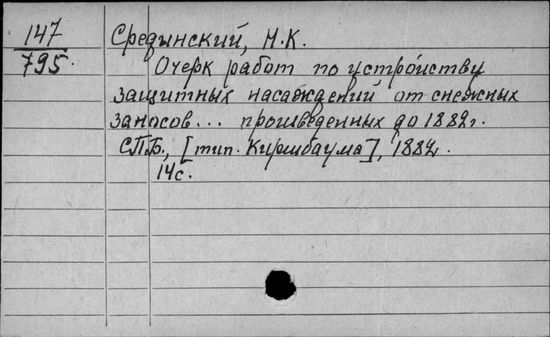 147
795
Срединский, Н.К.
Очерк работ по устройству
защитных насаждений от снежных
заносов... произведенных до 1882г.
СПБ., [тип. Киршбаума], 1882.
14с.